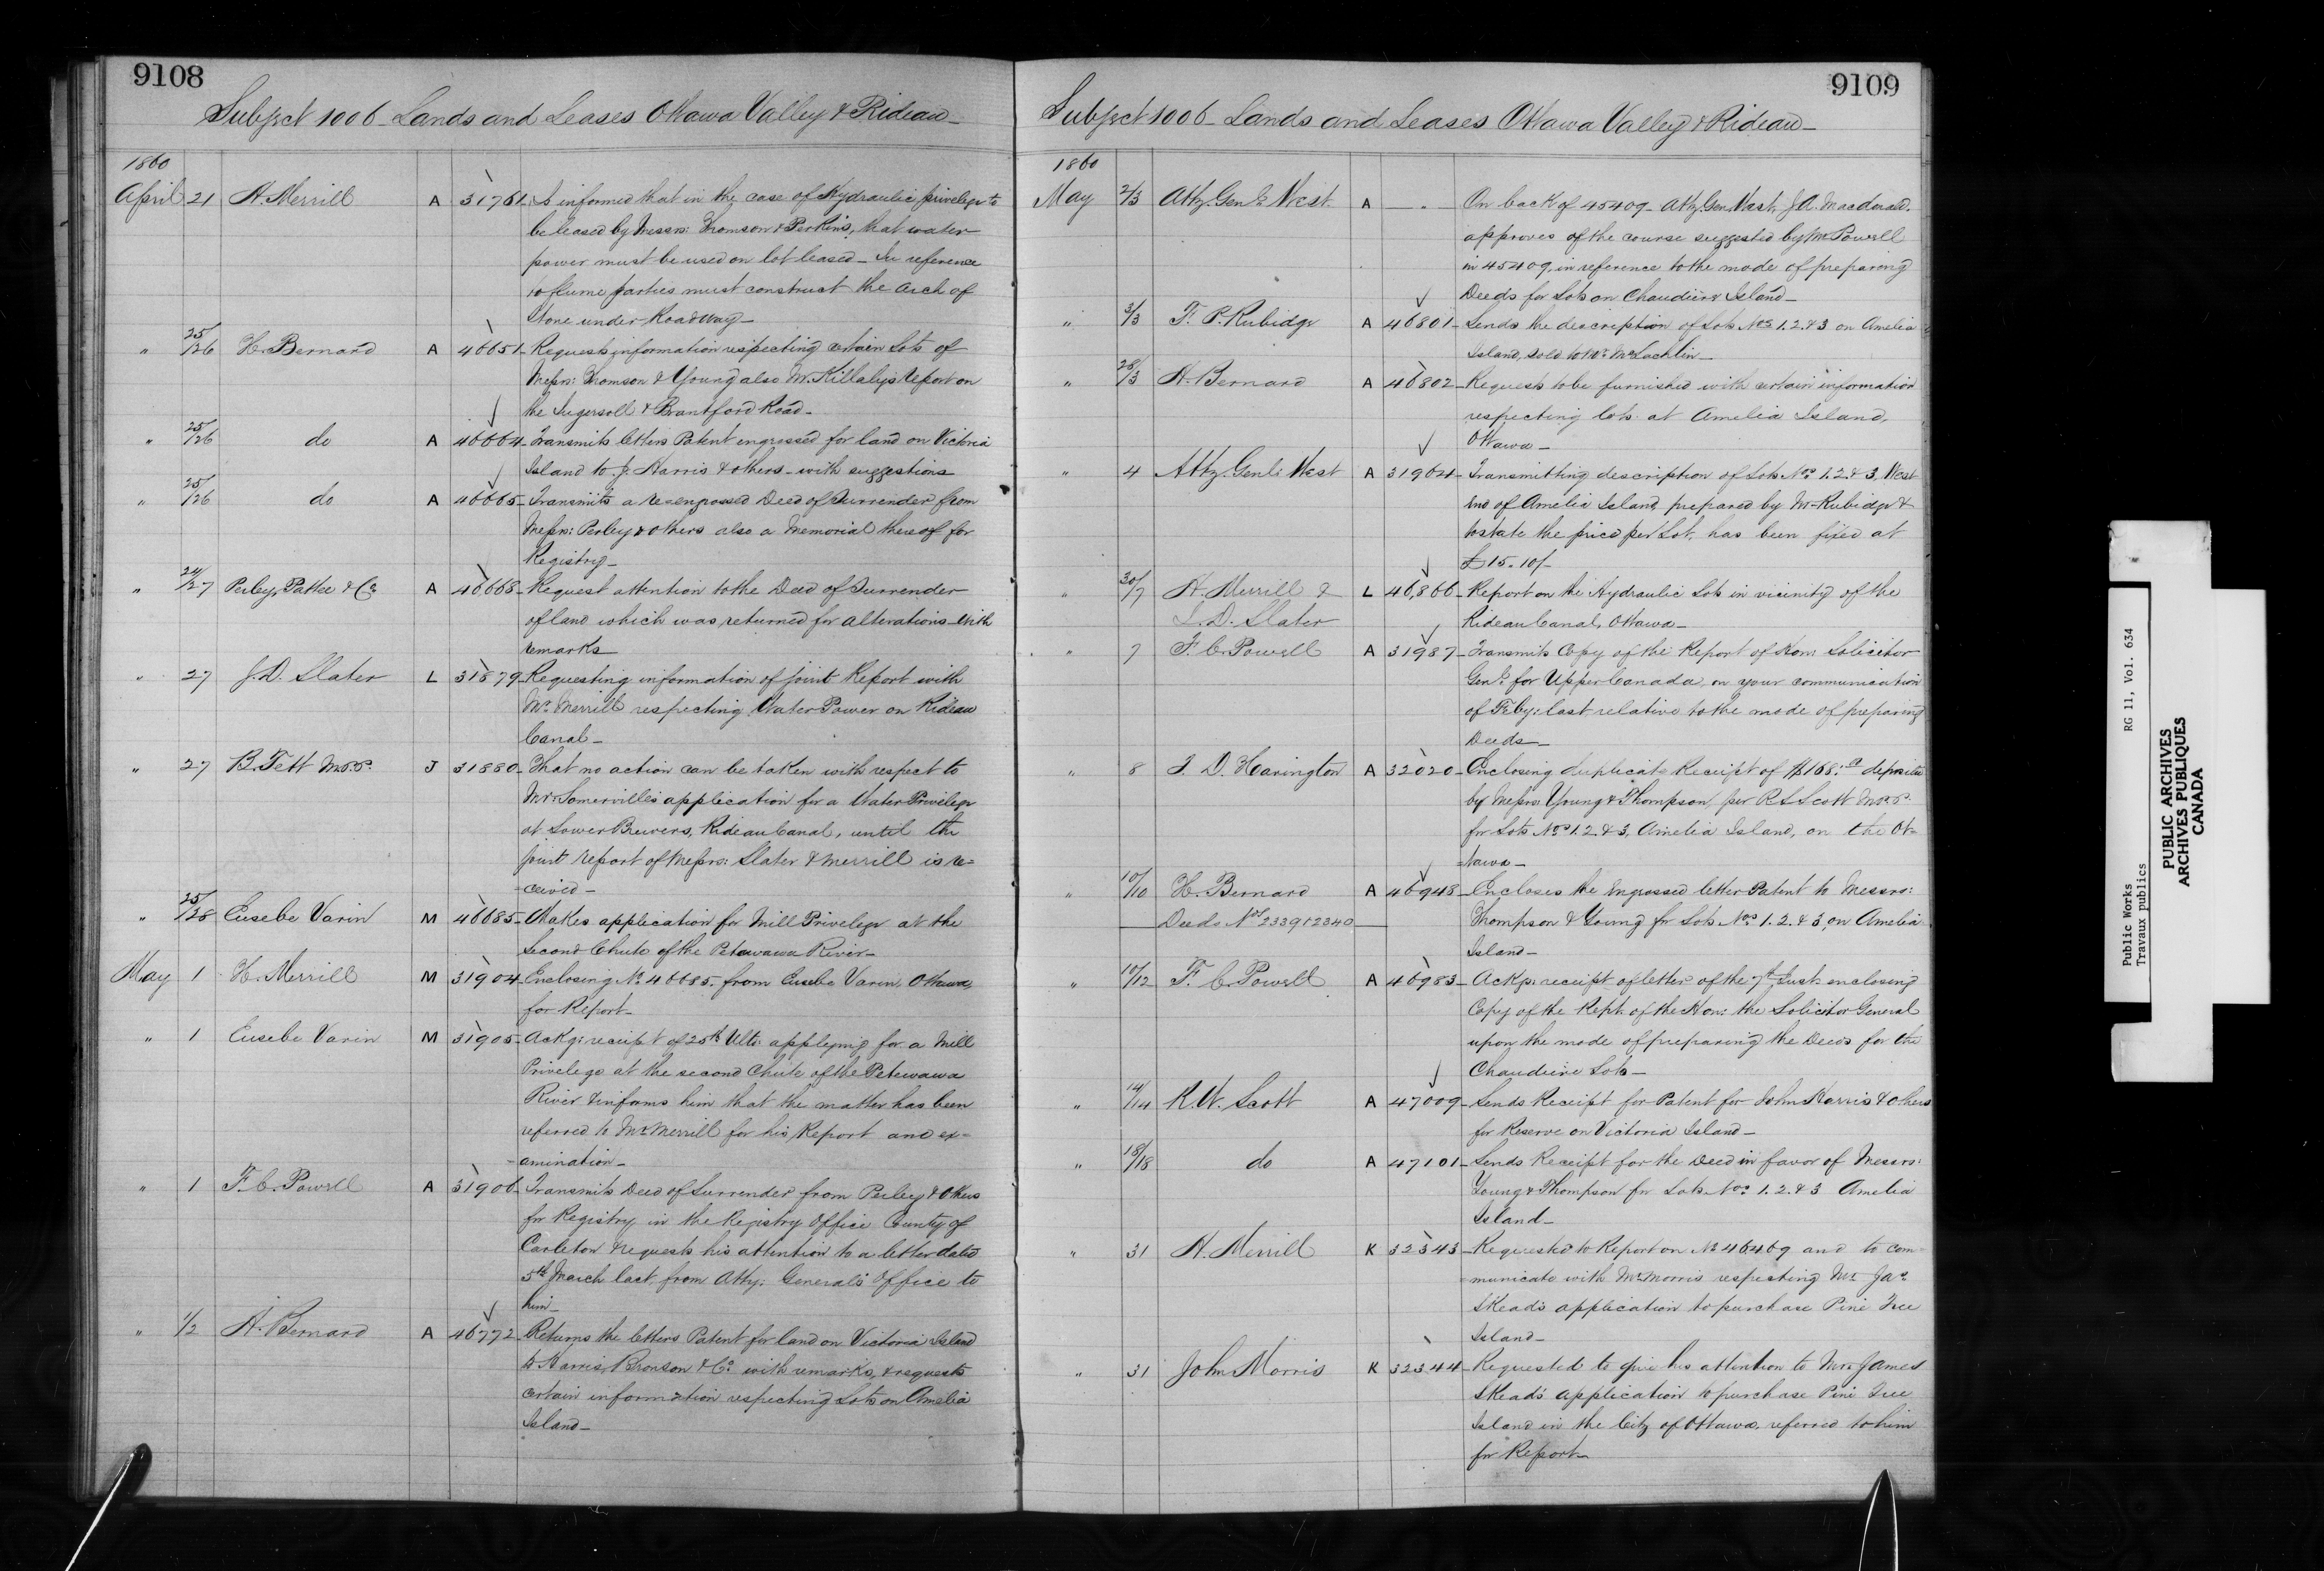 9108
Subject 1006 - Lands and Leases Ottawa Valley & Rideau -
1860
April 21 H. Merrill A 31761 Is informed that in the case of Hydraulic privelege to
be leased by Messrs: Thomson & Perkins, that water
power must be used on lot leased - In reference
to flume parties must construct the arch of
Stone under Roadway -
" 25/26 H. Bernard A 46651 - Requests information respecting certain Lots of
Messrs: Thomson & Young also Mr. Killaly's report on
the Ingersoll & Brantford Road -
" 25/26 do A 46664 - Transmits letters Patent engrossed for land on Victoria
Island to J. Harris & others - with suggestions
" 25/26 do A 46665 - Transmits a re-engrossed Deed of Surrender from
Messrs: Perley & others also a Memorial thereof for
Registry -
" 24/27 Perley, Pattee & Co. A 46,668 - Request attention to the Deed of Surrender
of land which was returned for alterations - with
remarks
" 27 J. D. Slater L 31879 - Requesting information of joint Report with
Mr. Merrill respecting Water Power on Rideau
Canal -
" 27 B. Tett M.P.P. J 31880 - That no action can be taken with respect to
Mr. Somerville's application for a Water Privelege
at Lower Brewers, Rideau Canal, until the
joint report of Messrs: Slater & Merrill is re=
=ceived -
" 25/28 Eusebe Varin M 46685 - Makes application for Mill Privelege at the
Second Chute of the Petawawa River -
May 1 H. Merrill M 31904 - Enclosing No. 46685. from Eusebe Varin, Ottawa,
for Report -
" 1 Eusebe Varin M 31905 - Ackg: receipt of 25th Ulto: applying for a Mill
Privelege at the second Chute of the Petewawa
River & informs him that the matter has been
referred to Mr. Merrill for his Report and ex=
=amination -
" 1 F. C. Powell A 31906 - Transmits Deed of Surrender from Perley & Others
for Registry in the Registry Office County of
Carleton & requests his attention to a letter dated
5th March last, from Atty: General's Office to
him -
" 1/2 H. Bernard A 46772 - Returns the letters Patent for land on Victoria Island
to Harris, Bronson & Co. with remarks, & requests
certain information respecting Lots on Amelia
Island -
9109
Subject 1006 - Lands and Leases Ottawa Valley & Rideau -
1860
May 2/3 Atty Genl. West A - . - On back of 45409 - Atty. Gen. West, J. A. Macdonald.
approves of the course suggested by Mr. Powell
in 45409, in reference to the mode of preparing
Deeds for Lots on Chaudiere Island -
" 3/3 F. P. Rubidge A 46801 - Sends the description of Lots Nos. 1. 2. & 3 on Amelia
Island, sold to Mr. McLachlin -
" 28/3 H. Bernard A 46802 - Requests to be furnished with certain information
respecting lots at Amelia Island,
Ottawa -
" 4 Atty. Genl: West A 31964 - Transmitting description of Lots Nos. 1. 2. & 3, West
end of Amelia Island, prepared by Mr. Rubidge &
to state the price per Lot, has been fixed at
£15.10/-
" 30/7 H. Merrill & L 46,866 - Report on the Hydraulic Lots in vicinity of the
J. D. Slater Rideau Canal, Ottawa -
" 7 F. C. Powell A 31987 - Transmits Copy of the Report of Hon: Solicitor
Genl. for Upper Canada, on your communication
of Feby: last relative to the mode of preparing
Deeds -
" 8 T. D. Harington A 32020 - Enclosing duplicate Receipt of $168: deposited
by Messrs Young & Thompson, per R. Scott M.P.P.
for Lots Nos. 1. 2. & 3, Amelia Island, on the Ot=
=tawa -
" 10/10 H. Bernard A 46948 - Encloses the engrossed letter Patent to Messrs:
Deeds Nos. 2339 & 2340 Thompson & Young for Lots Nos. 1. 2. & 3, on Amelia
Island -
" 10/12 F. C. Powell A 46983 - Ackgs. receipt of letter of the 7th Inst. enclosing
Copy of the Rept. of the Hon: the Solicitor General
upon the mode of preparing the Deeds for the
Chaudiere Lots -
" 14/14 R. W. Scott A 47009 - Sends Receipt for Patent for John Harris & others
for Reserve on Victoria Island -
" 18/18 do A 47101 - Sends Receipt for the Deed in favor of Messrs:
Young & Thompson for Lots Nos. 1. 2. & 3 Amelia
Island -
" 31 H. Merrill K 32343 - Requested to Report on No. 46469 and to com=
=municate with Mr. Morris respecting Mr. Jas.
Skead's application to purchase Pine Tree
Island -
" 31 John Morris K 32344 - Requested to give his attention to Mr. James
Skead's application to purchase Pine Tree
Island in the City of Ottawa, referred to him
for Report -
Public Works RG 11, Vol. 634
Travaux publics
PUBLIC ARCHIVES
ARCHIVES PUBLIQUES
CANADA